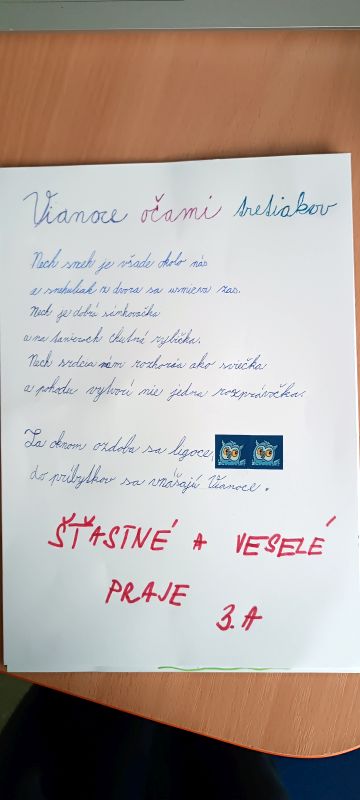 Vianoce očami tretiakov
Nech sneh je všade okolo nás
a snehuliak z dvora sa usmieva zas.
Nech je dobrá šinkovačka
a na tanieroch chutná rybička.
Nech srdcia nám rozhoria ako sviečka
a pohodu vytvorí nie jedna rozprávočka.
Za oknom ozdoba sa ligoce,
do príbytkov sa vnášajú Vianoce.
ŠŤASTNÉ A VESELÉ
PRAJE
3.A